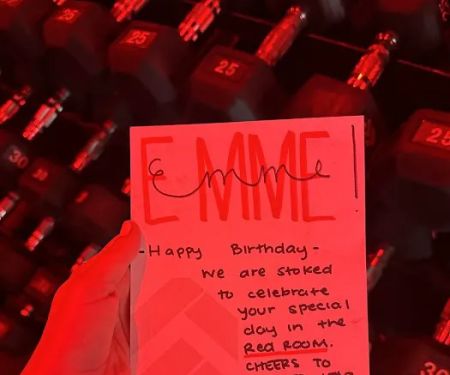 25
25
25
25
30
30
25
EMME
Emme
- Happy Birthday -
We are stoked
to celebrate
your special
day in the
Red Room.
CHEERS TO